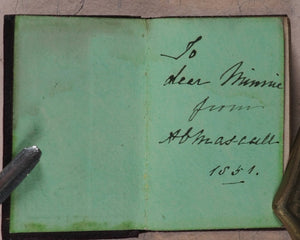 To
dear Minnie
from
1851.